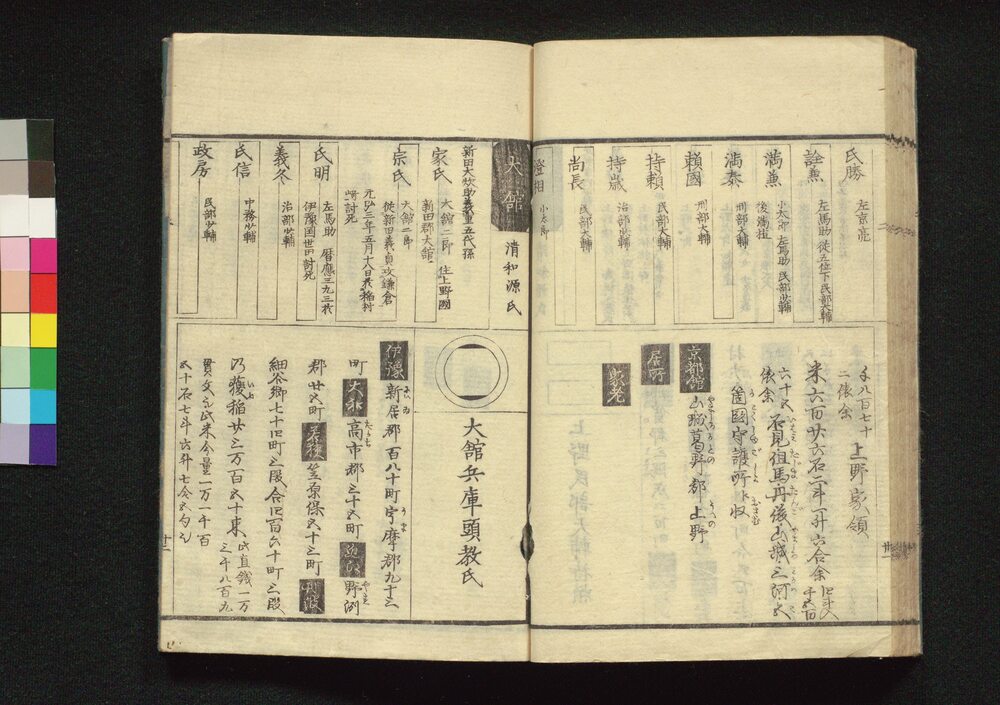 氏勝 左京亮
詮兼 左馬助 従五位下民部少輔
満兼 小太郎 左馬助 民部少輔
後満祐
満泰 刑部大輔
頼國 刑部大輔
持頼 民部大輔
持歳 治部少輔
尚長 民部大輔
澄相 小太郎
二張余
上野家領
米六百廿六石二斗一升六合余
俵余 石見但馬丹後山城三河
箇國守護所
京都館 山城葛野郡上野
居所
大舘 清和源氏
新田大炊助義重五代孫
家氏 大舘二郎 住上野國
新田郡大舘
宗氏 大舘二郎
従新田義貞攻鎌倉
元弘三年五月十八日於稲村
崎討死
氏明 左馬助 暦應三九三於
伊豫國世田討死
義冬 治部少輔
氏信 中務少輔
政房 民部少輔
大舘兵庫頭教氏
伊豫 新居郡百八十町宇摩郡九十三
町 高市郡三十五町 野洲
郡廿五町 若狭 笠原保五十三町 丹波
細谷郷七十四町三段合四百六十町三段
乃穫稲廿三万百五十束 此直銭一万
三千八百九
貫文 此米今量一万一千百
五十石七斗六升七合五勺